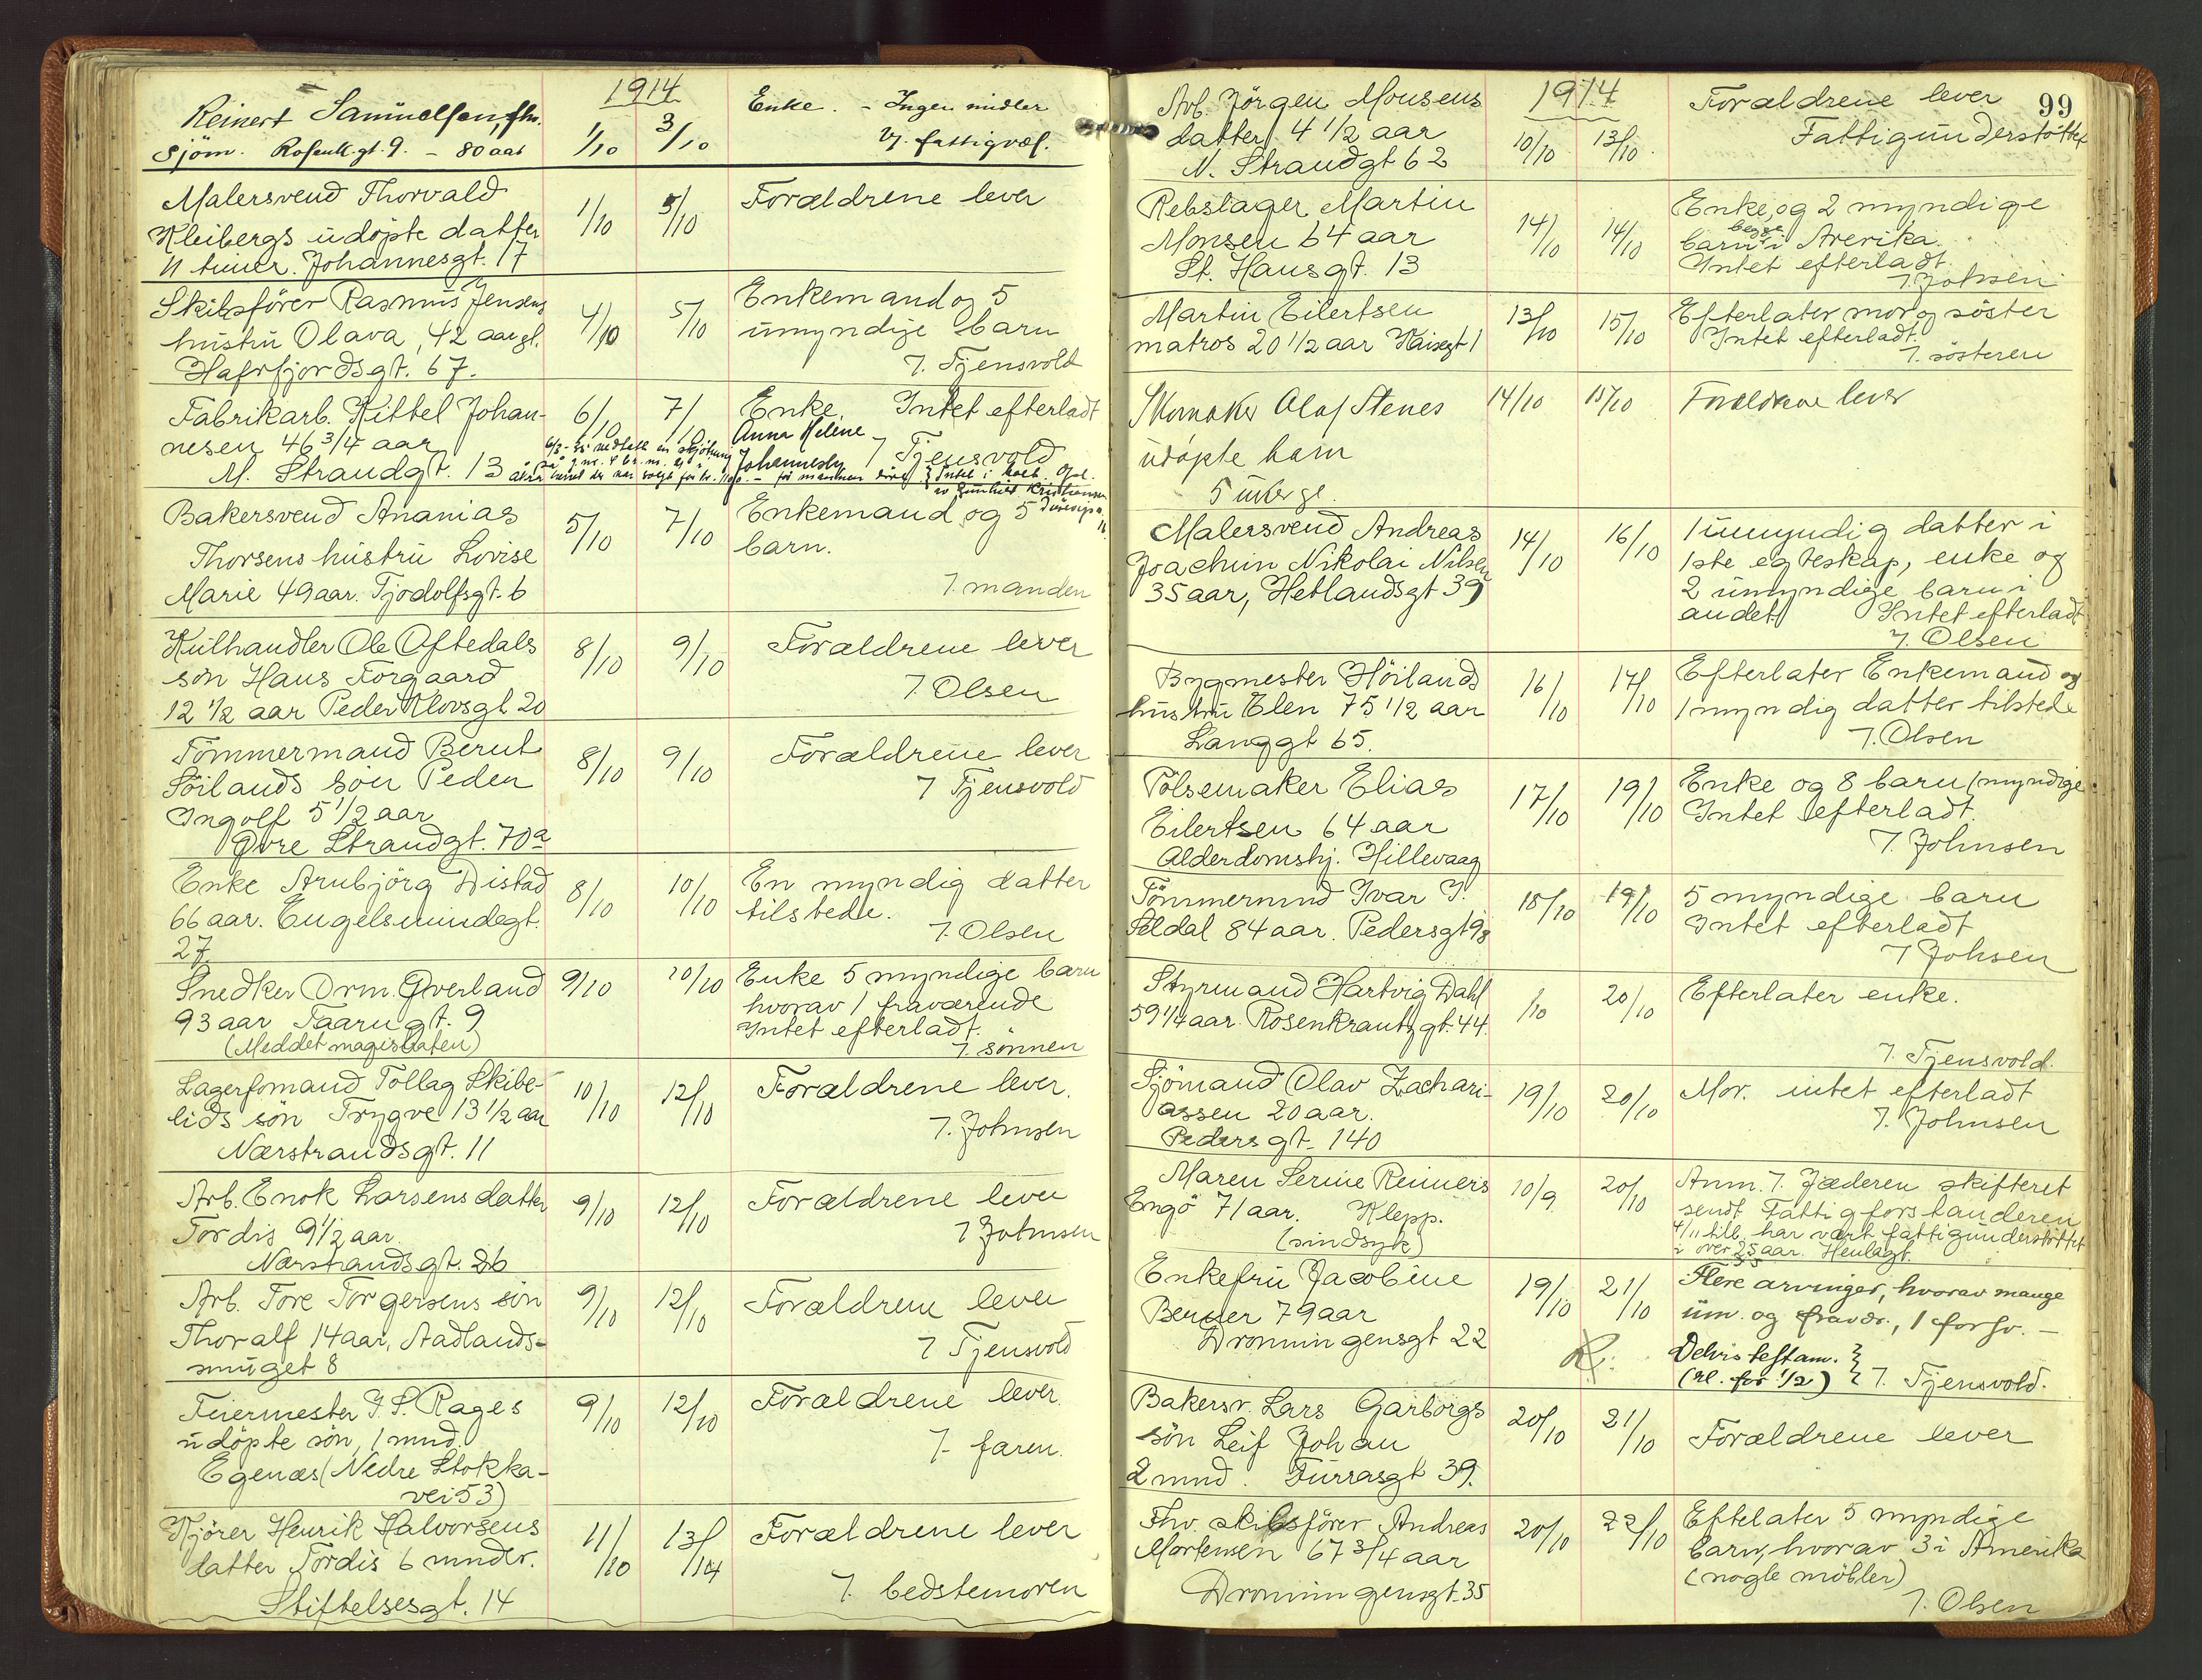 1914
Reinert Samuelsen, fhv.
Sjöm. Rosenk.gt. 9. – 80 aar
1/10 3/10
Enke. – Ingen midler
v/ fattigvæs.
Malersvend Thorvald
Kleibergs udöpte datter
11 timer. Johannesgt. 17
1/10 5/10
Forældrene lever
Skibsförer Rasmus Jensens
hustru Olava, 42 aar gl.
Hafrfjordsgt. 67.
4/10 5/10
Enkemand og 5
umyndige barn
v/ Tjensvold
Fabrikarb. Kittel Johan-
nesen 46 3/4 aar
M. Strandgt. 13
6/10 7/10
Enke. Intet efterladt
Anna Helene
Johannesen
v/ Tjensvold
Bakersvend Ananias
Thorsens hustru Lovise
Marie 49 aar. Tjodolfsgt. 6
5/10 7/10
Enkemand og 5
barn.
v/ manden
Kulhandler Ole Oftedals
sön Hans Torgaard
12 1/2 aar Peder Klovsgt 20
8/10 9/10
Forældrene lever
v/ Olsen
Tömmermand Bernt
Söilands sön Peder
Ingolf 5 1/2 aar
Övre Strandgt. 70a
8/10 9/10
Forældrene lever
v/ Tjensvold
Enke Arnbjörg Distad
66 aar. Engelsmindegt.
27.
8/10 10/10
En myndig datter
tilstede.
v/ Olsen
Snedker Orm Qverland
93 aar Taarngt. 9
(Meddelt magistraten)
9/10 10/10
Enke 5 myndige barn
hvorav 1 fraværende
Intet efterladt.
v/ sönnen
Lagerfomand Tollag Skibe-
lids sön Trygve 13 1/2 aar
Nærstrandsgt. 11
10/10 12/10
Forældrene lever.
v/ Johnsen
Arb. Enok Larsens datter
Tordis 9 1/2 aar.
Nærstrandsgt. 26
9/10 12/10
Forældrene lever
v/ Johnsen
Arb. Tore Torgersens sön
Thoralf 14 aar, Aadlands-
smuget 8
9/10 12/10
Forældrene lever
v/ Tjensvold
Feiermester J. S. Rages
udöpte sön, 1 mnd.
Egenæs (Nedre Stokka-
vei 53)
9/10 12/10
Forældrene lever.
v/ faren.
Kjörer Henrik Halvorsens
datter Tordis 6 mndr.
Stiftelsesgt. 14
11/10 13/10
Forældrene lever
v/ bedstemoren
99
1914
Arb. Jörgen Monsens
datter 4 1/2 aar
N. Strandgt 62
10/10 13/10
Forældrene lever
Fattigunderstöttet
Rebslager Martin
Monsen 64 aar
St. Hansgt. 13
14/10 14/10
Enke, og 2 myndige
barn begge i Arerika.
Intet efterladt.
v/ Johsen
Martin Eilertsen
matros 20 1/2 aar Kaisegt 1
13/10 15/10
Efterlater mor og söster
Intet efterladt.
v/ sösteren
Skomaker Olaf Stenes
udöpte barn
5 uker gl.
14/10 15/10
Forældrene lever
Malersvend Andreas
Joachim Nikolai Nilsen
35 aar, Hetlandsgt 39
14/10 16/10
1 umyndig datter i
1ste egteskap, enke og
2 umyndige barn i
andet. Intet efterladt
v/ Olsen
Bygmester Höilands
hustru Elen 75 1/2 aar
Langgt 65.
16/10 17/10
Efterlater Enkemand og
1 myndig datter tilstede
v/ Olsen
Pölsemaker Elias
Eilertsen 64 aar
Alderdomshj. Hillevaag
17/10 19/10
Enke og 8 barn (myndige
Intet efterladt.
v/ Johnsen
Tömmermnd Ivar I.
Aldal 84 aar. Pedersgt 98
18/10 19/10
5 myndige barn
Intet efterladt
v/ Johsen
Styrmand Hartvig Dahl
59 1/4 aar. Rosenkrantzgt. 44.
/10 20/10
Efterlater enke.
v/ Tjensvold.
Sjömand Olav Zachari-
assen 20 aar.
Pedersgt. 140
19/10 20/10
Mor. intet efterladt
v/ Johnsen
Maren Serine Reiners
Engö 71 aar. Klepp.
(sindsyk)
10/9 20/10
Anm. v/ Jæderen skifteret
sendt Fattigforstanderen
4/11 tilb. har vært fattigunderstöttet
i over 25 aar. Henlagt.
Enkefru Jacobine
Benner 79 aar
Dronningensgt 22
19/10 21/10
Flere arvinger, hvorav mange
um. og fravær., 1 forsv. –
Delvis testam.
(rl. for 1/2) v/ Tjensvold.
Bakersv. Lars Garborgs
sön Leif Johan
2 mnd. Furrasgt 39.
20/10 21/10
Forældrene lever
Fhv. skibsförer Andreas
Mortensen 67 3/4 aar
Dronningensgt. 35
20/10 22/10
Eftelater 5 myndige
barn, hvorav 3 i Amerika
(nogle möbler)
v/ Olsen